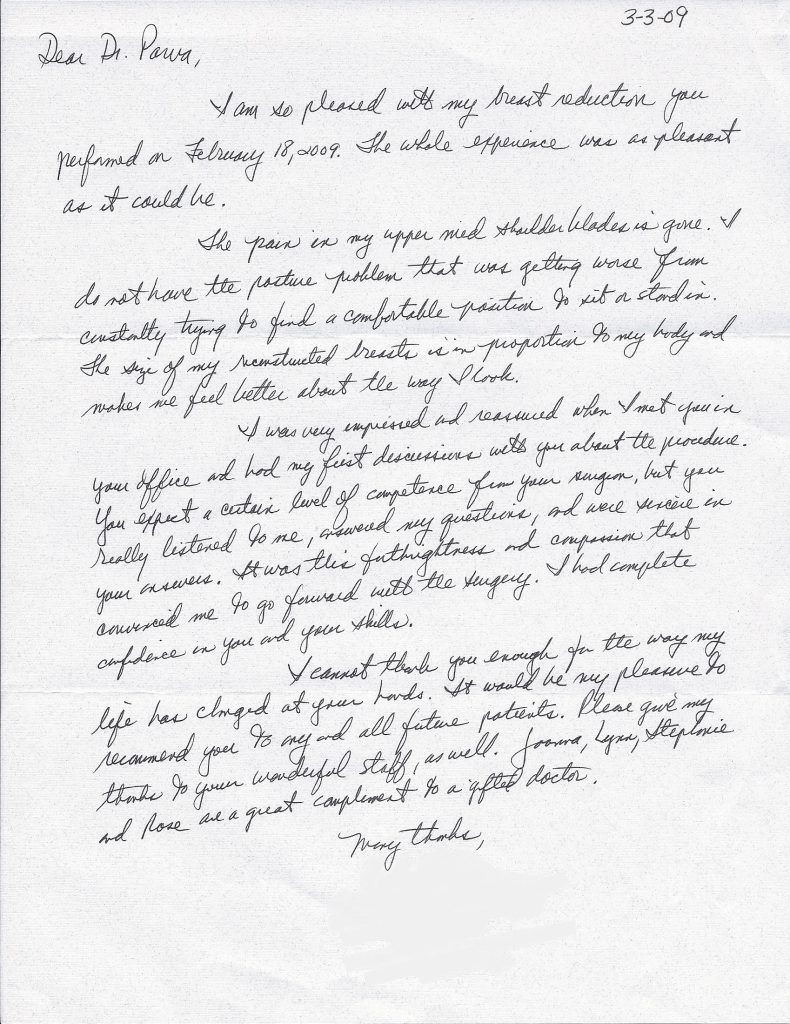 3-3-09
Dear Dr. Parva,
I am so pleased with my breast reduction you
performed on February 18, 2009. The whole experience was as pleasant
as it could be.
The pain in my upper mid shoulder blades is gone. I
do not have the posture problem that was getting worse from
constantly trying to find a comfortable position to sit or stand in.
The size of my reconstructed breasts is in proportion to my body and
makes me feel better about the way I look.
I was very impressed and reassured when I met you in
your office and had my first discussions with you about the procedure.
You expect a certain level of competence from your surgeon, but you
really listened to me, answered my questions, and were sincere in
your answers. It was this forthrightness and compassion that
convinced me to go forward with the surgery. I had complete
confidence in you and your skills.
I cannot thank you enough for the way my
life has changed at your hands. It would be my pleasure to
recommend you to any and all future patients. Please give my
thanks to your wonderful staff, as well. Joanna, Lynn, Stephanie
and Rose are a great compliment to a gifted doctor.
Many thanks,